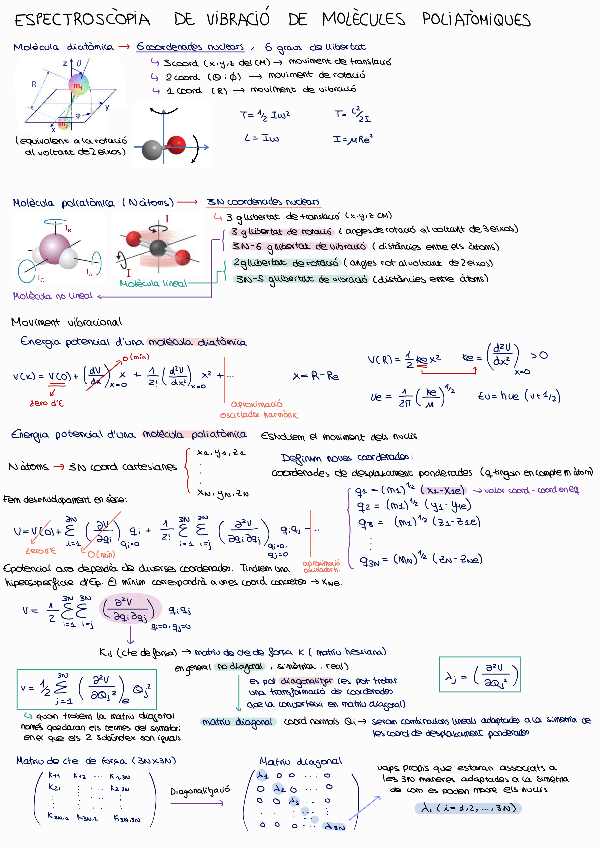 ESPECTROSCÒPIA DE VIBRACIÓ DE MOLÈCULES POLIATÒMIQUES
Molècula diatòmica → 6 coordenades nuclears, 6 graus de llibertat
↳ 3 coord (x,y,z del CM) → moviment de translació
↳ 2 coord (θ i ϕ) → moviment de rotació
↳ 1 coord (R) → moviment de vibració
T = 1/2 Iω² T = L²/2I
L = Iω I = μRe²
(equivalent a la rotació
al voltant de 2 eixos)
Molècula poliatòmica (N àtoms) → 3N coordenades nuclears
↳ 3 g llibertat de translació (x,y,z CM)
3 g llibertat de rotació (angles de rotació al voltant de 3 eixos)
3N-6 g llibertat de vibració (distàncies entre els àtoms)
2 g llibertat de rotació (angles rot al voltant de 2 eixos)
3N-5 g llibertat de vibració (distàncies entre àtoms)
Molècula lineal
Molècula no lineal
Moviment vibracional
Energia potencial d'una molècula diatòmica
V(x) = V(0) + (dV/dx)x=0 x + 1/2! (d²V/dx²)x=0 x² + ...
0 (mín)
zero d'E
aproximació
oscil·lador harmònic
x = R - Re
V(R) = 1/2 ke x² ke = (d²V/dx²)x=0 > 0
νe = 1/2π (ke/μ)^1/2 Eυ = hνe (υ+1/2)
Energia potencial d'una molècula poliatòmica Estudiem el moviment dels nuclis
N àtoms → 3N coord cartesianes { x1, y1, z1
⋮
xN, yN, zN
Definim noves coordenades:
coordenades de desplaçament ponderades (q tinguin en compte m àtom)
q1 = (m1)^1/2 (x1-x1e) → valor coord - coord en eq.
q2 = (m1)^1/2 (y1-y1e)
q3 = (m1)^1/2 (z1-z1e)
⋮
q3N = (mN)^1/2 (zN-zNe)
Fem desenvolupament en sèrie:
V = V(0) + Σ i=1 3N (∂V/∂qi)qi=0 qi + 1/2! Σ i=1 3N Σ i=j 3N (∂²V/∂qi∂qj)qi=0, qj=0 qi qj ...
zero d'E 0 (mín)
aproximació
oscil·lador h.
Epotencial ara dependrà de diverses coordenades. Tindrem una
hipersuperfície d'Ep. El mínim correspondrà a unes coord concretes → xNe.
V = 1/2 Σ i=1 3N Σ i=j 3N (∂²V/∂qi∂qj)qi=0, qj=0 qi qj
Kij (cte de força) → matriu de cte de força K (matriu hessiana)
en general no diagonal, simètrica, real)
es pot diagonalitzar (es pot trobar
una transformació de coordenades
que la converteixi en matriu diagonal)
matriu diagonal coord normals Qi → seran combinacions lineals adaptades a la simetria de
les coord de desplaçament ponderades
V = 1/2 Σ j=1 3N (∂²V/∂Qj²)e Qj²
λj = (∂²V/∂Qj²)
↳ quan trobem la matriu diagonal
només quedaran els termes del sumatori
en el que els 2 subíndex són iguals
Matriu de cte de força (3N×3N)
K11 K12 ... K1,3N
K21 ⋮ ... K2,3N
K3N,1 K3N,2 K3N,3N
Diagonalització
Matriu diagonal
λ1 0 0 ... 0
0 λ2 0 ... 0
0 0 λ3 ... 0
0 0 0 ... λ3N
vaps propis que estaran associats a
les 3N maneres adaptades a la simetria
de com es poden moure els nuclis
λi (i = 1,2,...,3N)